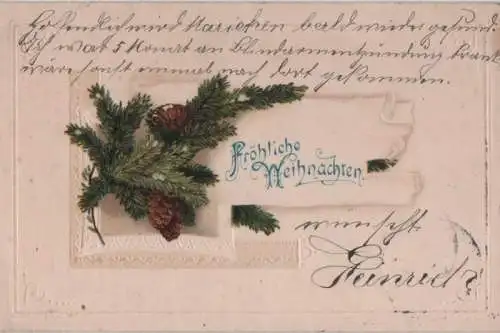 Hoffendlich wird Mariechen bald wieder gesund.
Ich war 5 Monat an Blindarmentzündung krank
wäre sonst einmal nach dort gekommen.
Fröhliche
Weihnachten.
wünscht.
Heinrich